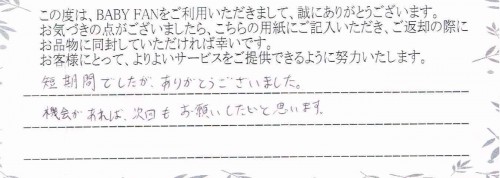 この度は、BABY FANをご利用いただきまして、誠にありがとうございます。
お気づきの点がございましたら、こちらの用紙にご記入いただき、ご返却の際に
お品物に同封していただければ幸いです。
お客様にとって、よりよいサービスをご提供できるように努力いたします。
短期間でしたが、ありがとうございました。
機会があれば、次回もお願いしたいと思います。